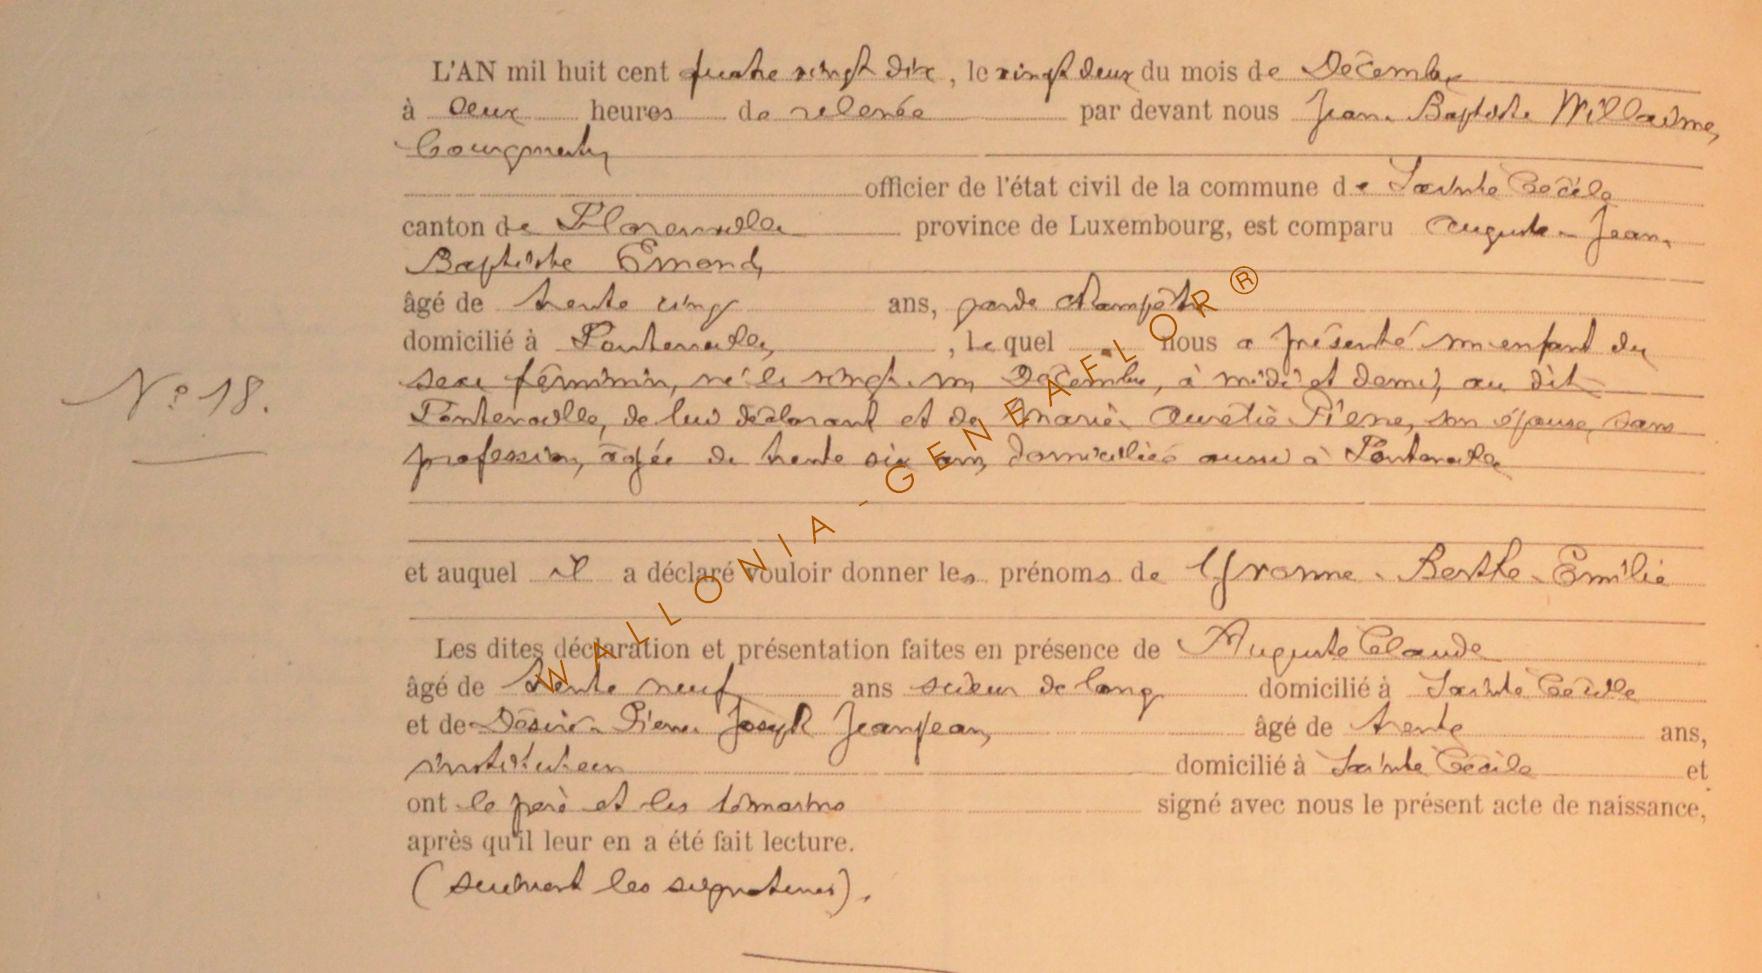 L'AN mil huit cent quatre vingt dix, le vingt deux du mois de Décembre
à deux heures de relevée par devant nous Jean-Baptiste Willaime,
bourgmestre
officier de l'état civil de la commune de Sainte Cécile
canton de Florenville province de Luxembourg, est comparu Auguste-Jean-
Baptiste Emond,
âgé de trente cinq ans, garde champêtre
domicilié à Fontenoille, lequel nous a présenté un enfant du
N° 18.
sexe féminin, né le vingt-un Décembre, à midi et demi, au dit
Fontenoille, de lui déclarant et de Marie-Aurélie Pierre, son épouse, sans
profession, âgée de trente six ans, domiciliés aussi à Fontenoille
et auquel il a déclaré vouloir donner les prénoms de Yvonne-Berthe-Emilie
Les dites déclaration et présentation faites en présence de Auguste Claude
âgé de trente neuf ans scieur de long domicilié à Sainte Cécile
et de Désiré-Pierre Joseph Jeanjean, âgé de trente ans,
instituteur domicilié à Sainte Cécile et
ont le père et les témoins signé avec nous le présent acte de naissance,
après qu'il leur en a été fait lecture.
(suivent les signatures).
WALLONIA-GENEAFLOR®